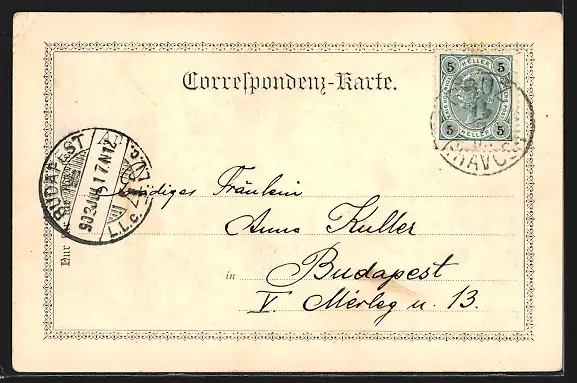 Correspondenz-Karte.
5 HELLER 5
5 HELLER 5
BUDAPEST
903 JUN 17 N12
Fräulein
Anna Kuller
in Budapest
V. Mérleg u. 13.
Nur